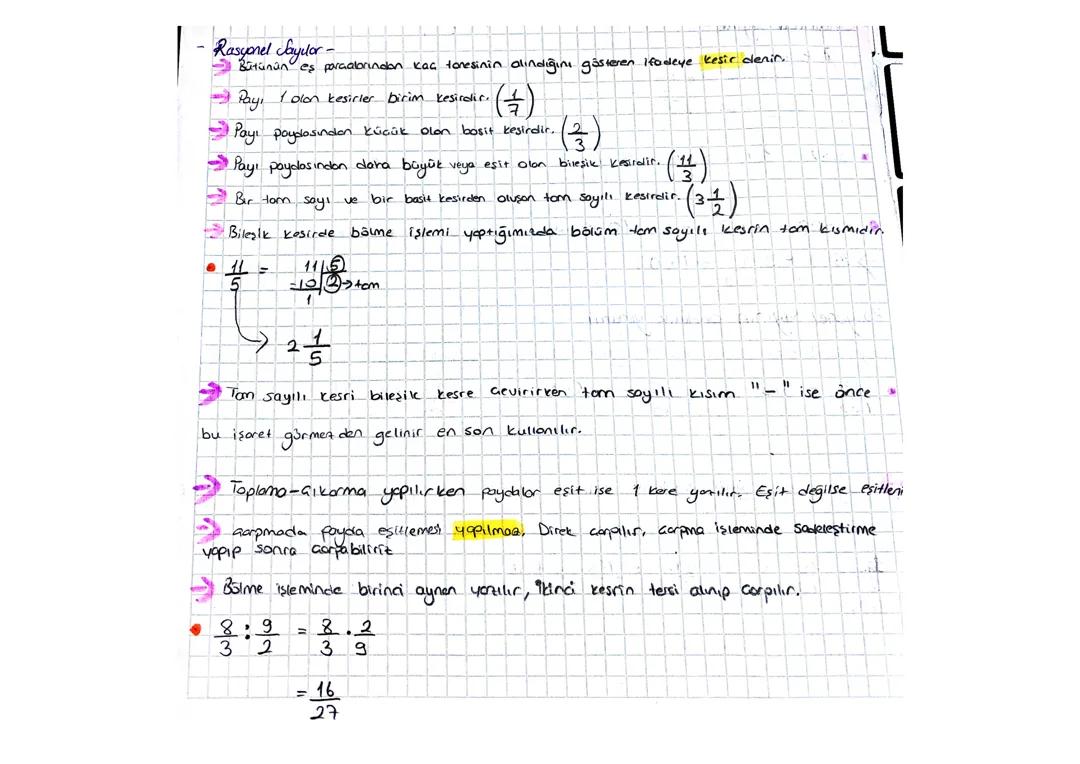 - Rasyonel Sayılar -
→ Bütünün eş parçalarından kaç tanesinin alındığını gösteren ifadeye kesir denir.
→ Payı 1 olan kesirler birim kesirdir. (1/7)
→ Payı paydasından küçük olan basit kesirdir. (2/3)
→ Payı paydasından daha büyük veya eşit olan bileşik kesirdir. (11/3)
→ Bir tam sayı ve bir basit kesirden oluşan tam sayılı kesirdir. (3 1/2)
→ Bileşik kesirde bölme işlemi yaptığımızda bölüm tam sayılı kesrin tam kısmıdır.
• 11/5 = 11 | 5
-10 | 2 → tam
1
2 1/5
→ Tam sayılı kesri bileşik kesre çevirirken tam sayılı kısım "-" ise önce
bu işaret görmezden gelinir en son kullanılır.
→ Toplama-çıkarma yapılırken paydalar eşit ise 1 kere yazılır. Eşit değilse eşitleni
→ çarpmada payda eşitlemesi yapılmaz. Direk çarpılır, çarpma işleminde sadeleştirme
yapıp sonra çarpabiliriz
→ Bölme işleminde birinci aynen yazılır, ikinci kesrin tersi alınıp çarpılır.
• 8/3 : 9/2 = 8/3 . 2/9
= 16/27